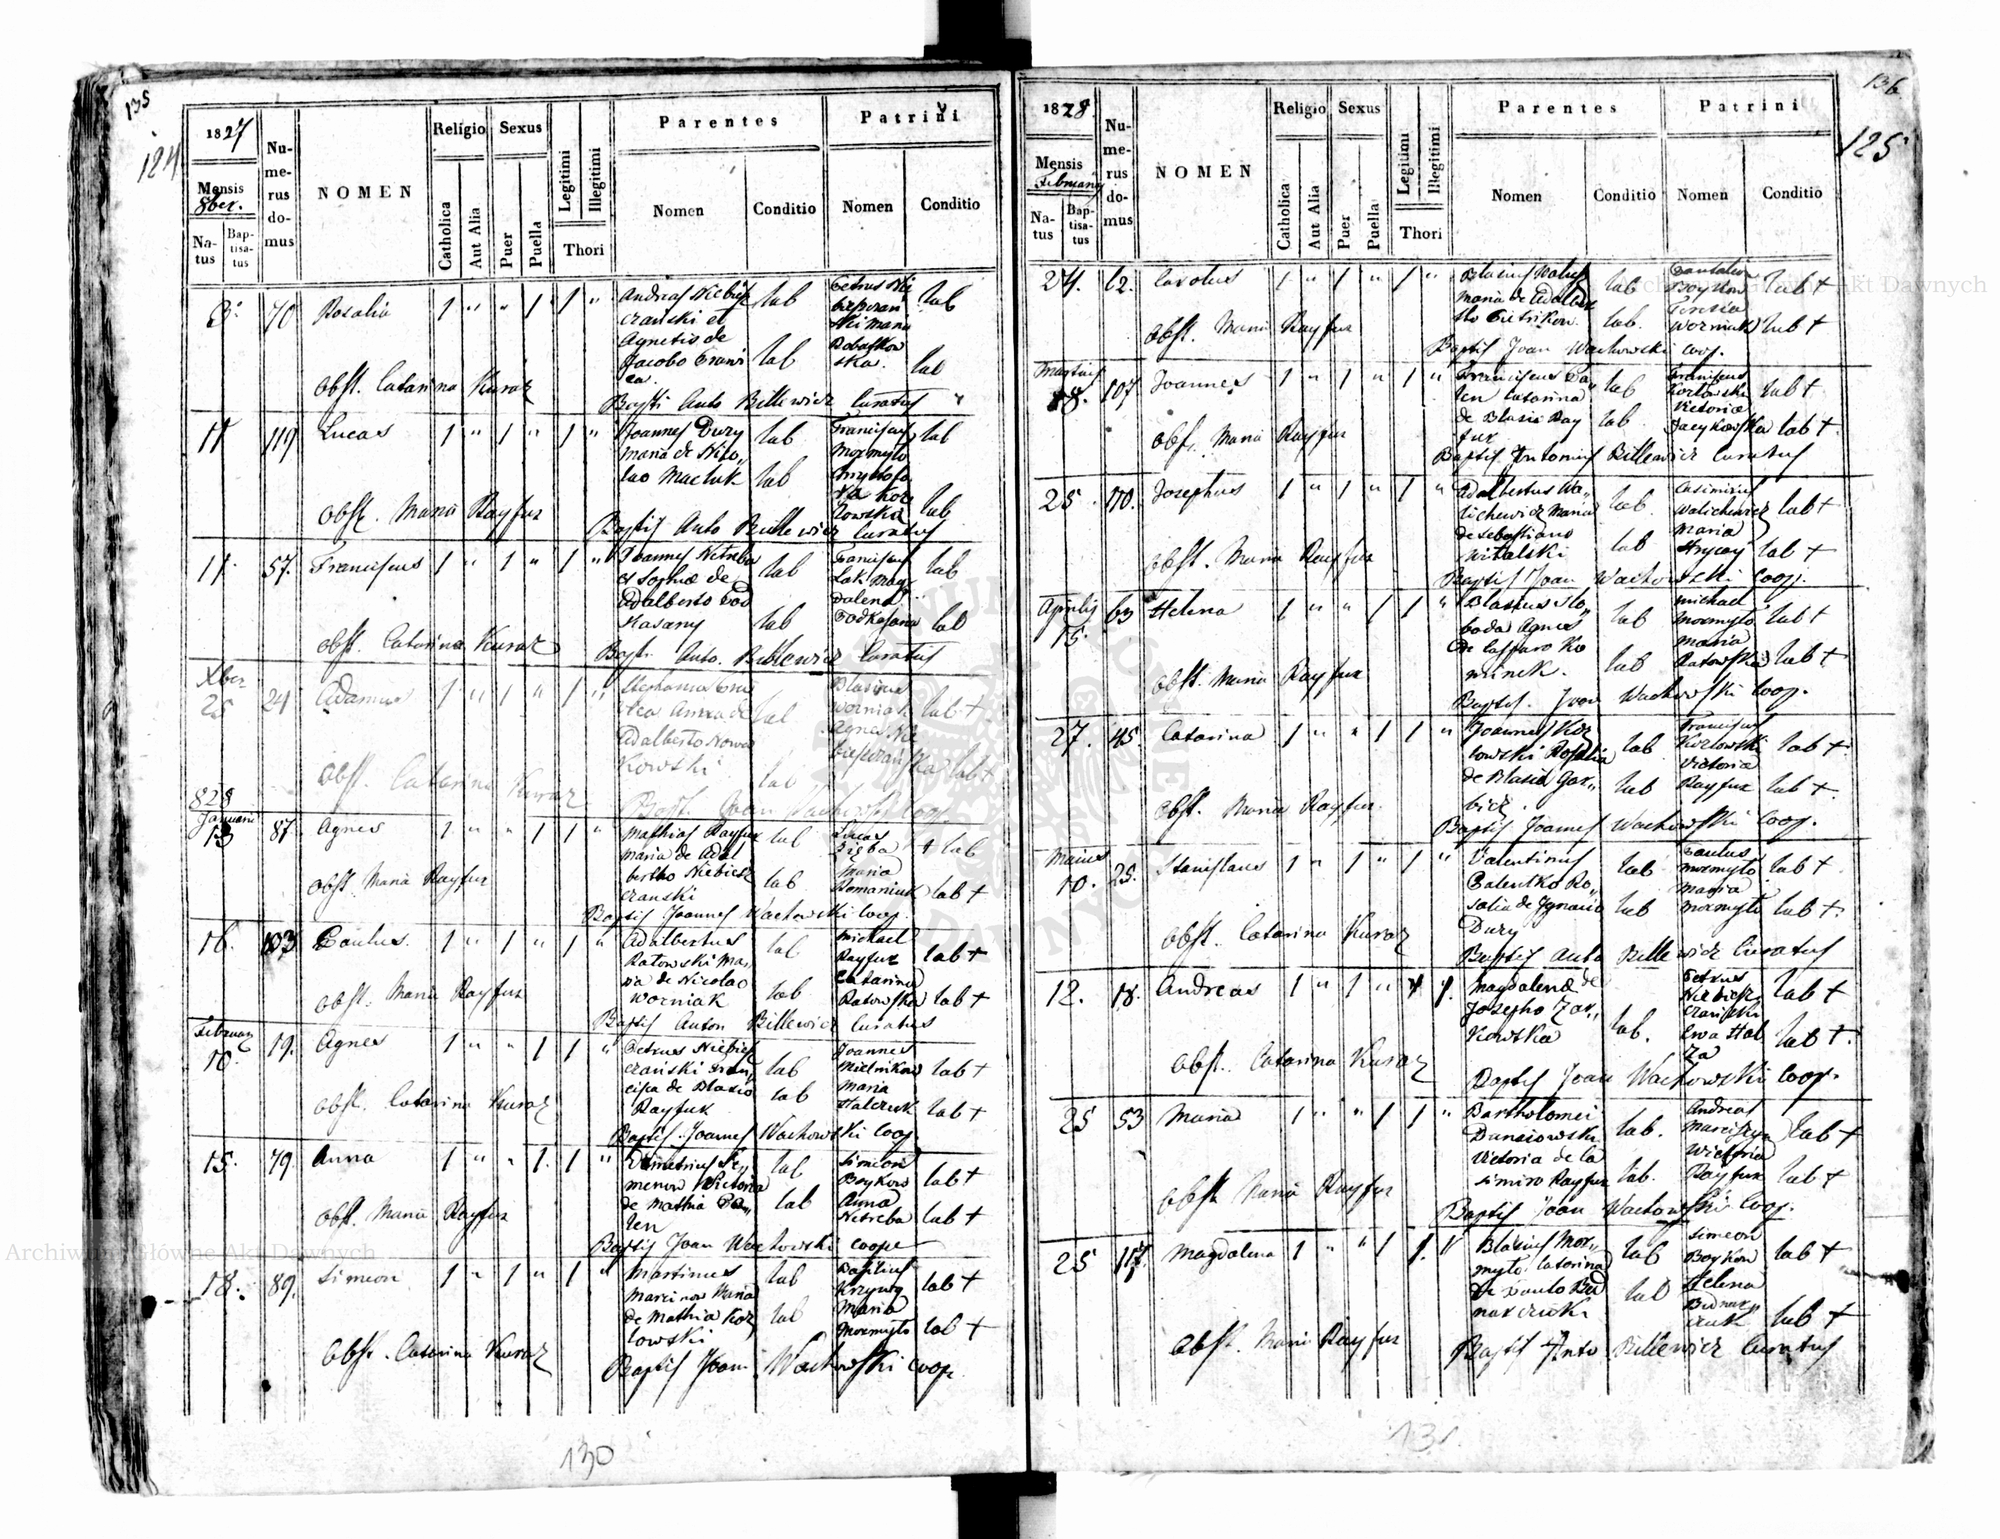 135
124
1827
Mensis
8ber.
Na-
tus
Bap-
tisa-
tus
Nu-
me-
rus
do-
mus
NOMEN
Religio
Catholica
Aut Alia
Sexus
Puer
Puella
Legitimi
Illegitimi
Thori
Parentes
Nomen
Conditio
Patrini
Nomen
Conditio
3. 70 Rosalia 1 " " 1 1 "
Agnetis de
Jacobo
lab
lab
lab
lab
Obst. Catarina Kuraz
Bapti Anto Billewicz Curatus
11 119 Lucas 1 " 1 " 1 "
Joannes Dury
Maria de Niko„
lao Maciuk
lab
lab
Franciscus
Mormyto
lowska
lab
lab
Obst. Maria Rayfur
Baptis Anto Billewicz Curatus
11. 57. Franciscus 1 " 1 " 1 "
Joannes Netreba
et Sophie de
Adalberto Pod
kasany
lab
lab
Franciscus
Lak Mag-
dalena
lab
lab
Obst. Catarina Kuraz
Bapti. Anto. Billewicz Curatus
Xber
25 24 Adamus 1 " 1 " 1 "
Anna de
Adalberto Nowa
kowski
lab
lab
Blasius
Worniak
Agnes Nie
lab +
lab +
Obst. Catarina Kuraz
Bapt. Joan Wachowski Coop
828
Januarii
13 87. Agnes 1 " " 1 1 "
Mathias Rayfur
Maria de Adal
bertho Niebiesz
czanski
lab
lab
Lucas
Zięba
Maria
Romaniuk
+ lab
lab +
Obst Maria Rayfur
Baptis Joannes Wachowski Coop.
16. 103 Paulus. 1 " 1 " 1 "
Adalbertus
Ratowski Ma„
ria de Nicolao
Worniak
lab
lab
Michael
Rayfur
Catarina
Ratowska
lab +
lab +
Obst. Maria Rayfur
Baptis Anton Billewicz Curatus
Februar
10. 19. Agnes 1 " " 1 1 "
Petrus Niebiesz
czanski Fran„
cisca de Blasio
Rayfur
lab
lab
Joannes
Mielnikow
Maria
Halczuk
lab +
lab +
Obst. Catarina Kuraz
Baptis. Joannes Wachowski Coop.
15. 79. Anna 1 " " 1. 1 "
Demetrius Se„
menow Victoria
de Mathia Pa„
len
lab
lab
Simeon
Boykow
Anna
Netreba
lab +
lab +
Obst. Maria Rayfur
Baptis Joan Wachowski Coope
18. 89. Simeon 1 " 1 " 1 "
Martinus
Marcinow Maria
de Mathia Koz
lowski
lab
lab
Basilius
Krzywy
Maria
Mormyto
lab +
lab +
Obst. Catarina Kuraz
Baptis Joan. Wachowski Coop
130
136
125
1828.
Mensis
Februarij
Na-
tus
Bap-
tisa-
tus
Nu-
me-
rus
do-
mus
NOMEN
Religio
Catholica
Aut Alia
Sexus
Puer
Puella
Legitimi
Illegitimi
Thori
Parentes
Nomen
Conditio
Patrini
Nomen
Conditio
24. 12. Carolus 1 " 1 " 1 "
Maria de Adalber
tho Pietrikow.
lab
lab.
Pantaleon
Boykow
Teresia
Worniak
lab +
lab +
Obst. Maria Rayfur
Baptis Joan Wachowski Coop.
Martius
18. 107 Joannes 1 " 1 " 1 "
Franciscus Pa„
len Catarina
de Blasio Ray
fur
lab
lab
Franciscus
Kozlowski
Victoria
Jacykowska
lab +
lab +
Obs. Maria Rayfur
Baptis Antonius Billewicz Curatus
25. 110. Josephus 1 " 1 " 1 "
Adalbertus Wa„
lichewicz Maria
de Sebastiano
Witalski
lab.
lab
Casimirus
Walichewicz
Maria
Hrycay
lab +
lab +
Obst. Maria Rayfur
Baptis Joan Wachowski Coop.
Aprilis
15. 63 Helena 1 " " 1 1 "
Blasius Slo„
boda Agnes
de Casparo Ko
minek.
lab
lab
Michael
Mormyto
Maria
Ratowska
lab +
lab +
Obst. Maria Rayfur
Baptis. Joan Wachowski Coop.
27. 45. Catarina 1 " " 1 1 "
Joannes Koz
lowski Rosalia
de Blasio Gar„
bicz.
lab
lab
Franciscus
Kozlowski
Victoria
Rayfur
lab +
lab +
Obst. Maria Rayfur.
Baptis Joannes Wachowski Coop.
Maius
10. 25. Stanislaus 1 " 1 " 1 "
Valentinus
Palentko Ro„
salia de Ignacio
Dury
lab
lab
Paulus
Mormyto
Maria
Mormyto
lab +
lab +
Obst. Catarina Kuraz
Baptis Anto Billewicz Curatus
12. 18. Andreas 1 " 1 " 1.
Magdalena de
Josepho Zar„
kowska
lab.
Petrus
Niebiesz
czanski
Ewa Hal
za
lab +
lab +
Obst. Catarina Kuraz
Baptis Joan Wachowski Coop.
25 53 Maria 1 " " 1 1 "
Bartholomei
Danaiowski
Victoria de Ca
simiro Rayfur
lab.
lab.
Andreas
Marciszyn
Wictoria
Rayfur
lab +
lab +
Obst Maria Rayfur
Baptis Joan Wachowski Coop.
25 117. Magdalena 1 " " 1 1. "
Blasius Mor„
myto Catarina
de Paulo Bed
narczuk
lab
lab
Simeon
Boykow
Helena
Bednar„
czuk
lab +
lab +
Obst. Maria Rayfur
Baptis Anto Billewicz Curatus
131.
Archiwum Główne Akt Dawnych
Archiwum Główne Akt Dawnych